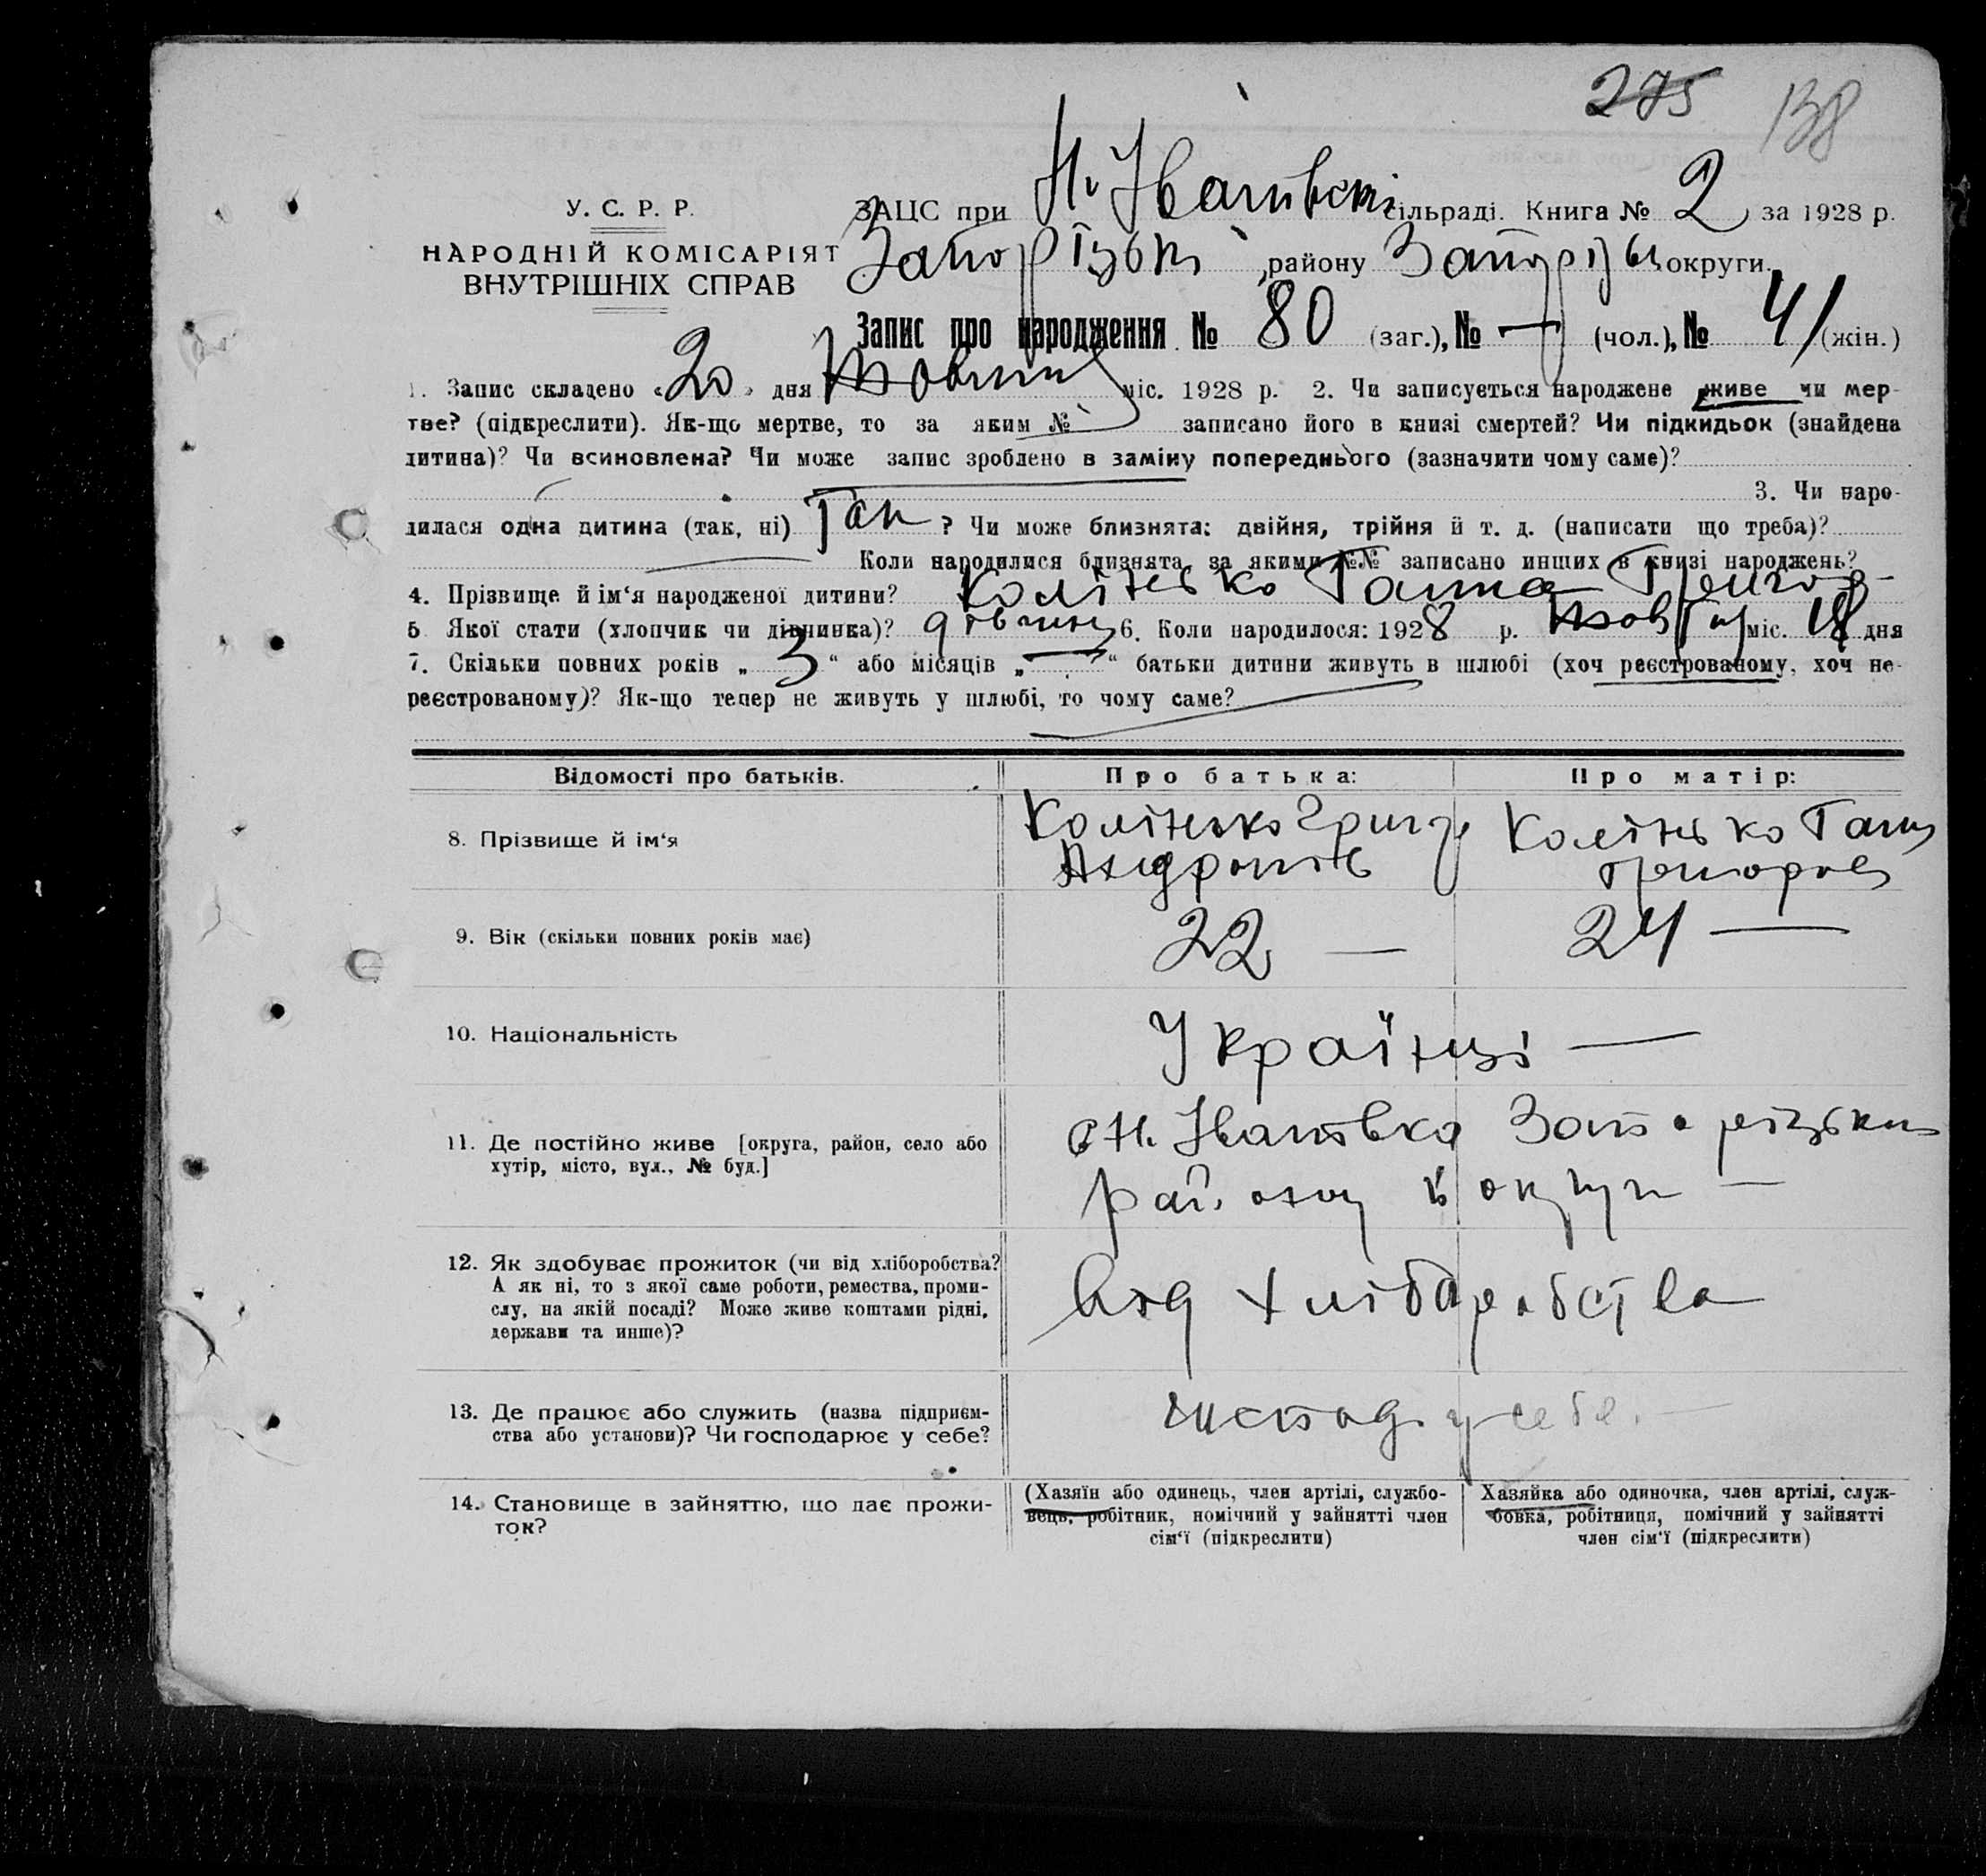 275 138
У. С. Р. Р.
НАРОДНІЙ КОМІСАРІЯТ
ВНУТРІШНІХ СПРАВ
ЗАЦС при Н. Іванівські сільраді. Книга № 2 за 1928 р.
Запорізьк району Запоріз округи.
Запис про народження № 80 (заг.), № — (чол.), № 41 (жін.)
1. Запис складено «20» дня Жовтня міс. 1928 р. 2. Чи записується народжене живе чи мер-
тве? (підкреслити). Як-що мертве, то за яким № записано його в книзі смертей? Чи підкидьок (знайдена
дитина)? Чи всиновлена? Чи може запис зроблено в заміну попереднього (зазначити чому саме)?
3. Чи наро-
дилася одна дитина (так, ні) Так ? Чи може близнята: двійня, трійня й т. д. (написати що треба)?
Коли народилися близнята, за якими №№ записано инших в книзі народжень?
4. Прізвище й ім‘я народженої дитини? Колінько Ганна Григор
5 Якої стати (хлопчик чи дівчинка)? дівчина 6. Коли народилося: 1928 р. Жовтня міс. 18 дня
7. Скільки повних років „ 3 “ або місяців „ — “ батьки дитини живуть в шлюбі (хоч реєстрованому, хоч не-
реєстрованому)? Як-що тепер не живуть у шлюбі, то чому саме?
Відомості про батьків. Про батька: Про матір:
8. Прізвище й ім‘я Колінько Григор Колінько Ганна
Андронів Григоров
9. Вік (скільки повних років має) 22 — 24 —
10. Національність Українці —
11. Де постійно живе [округа, район, село або
хутір, місто, вул., № буд.]
с Н. Іванівка Запорізьким
району й округи —
12. Як здобуває прожиток (чи від хліборобства?
А як ні, то з якої саме роботи, ремества, проми-
слу, на якій посаді? Може живе коштами рідні,
держави та инше)?
від хліборобства
13. Де працює або служить (назва підприєм-
ства або установи)? Чи господарює у себе?
у себе. —
14. Становище в зайняттю, що дає прожи-
ток?
(Хазяїн або одинець, член артілі, службо-
вець, робітник, помічний у зайнятті член
сім‘ї (підкреслити)
Хазяйка або одиночка, член артілі, служ-
бовка, робітниця, помічний у зайнятті
член сім‘ї (підкреслити)